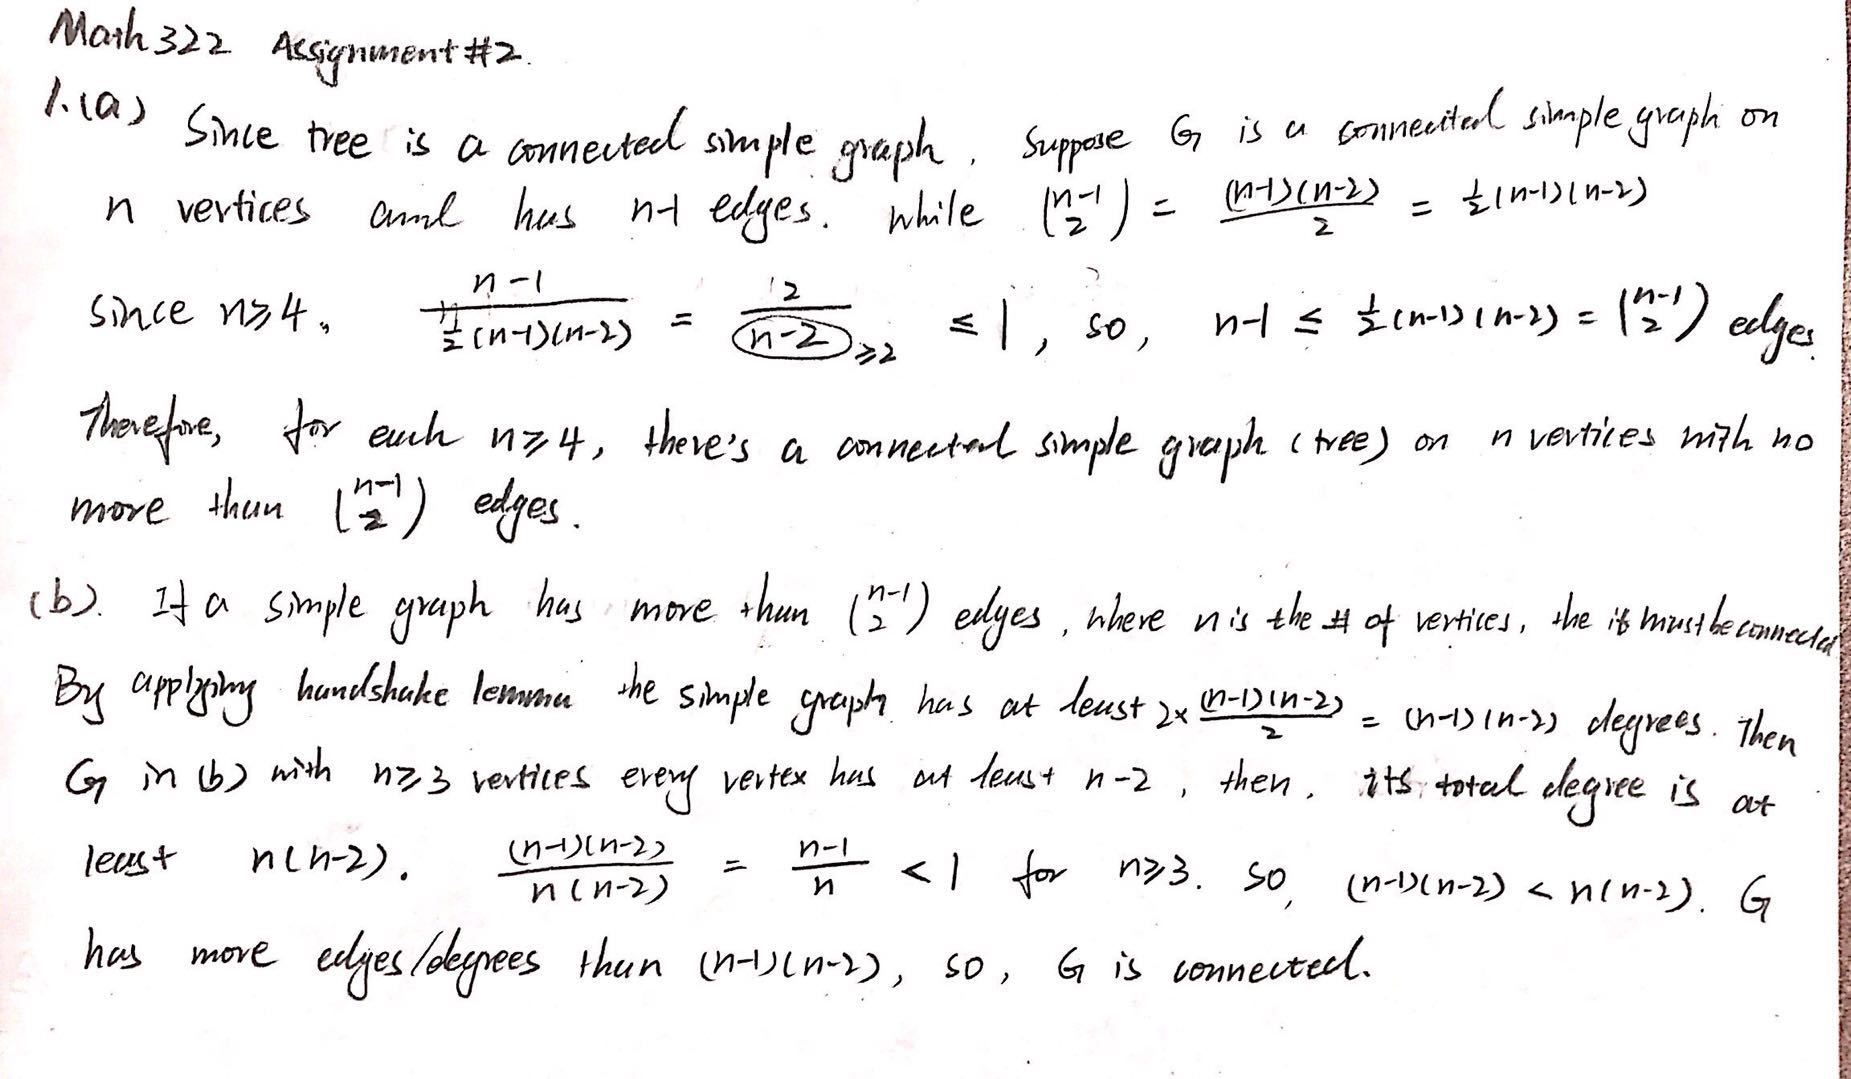 Math 322 Assignment #2.
1.(a) Since tree is a connected simple graph, Suppose G is a connected simple graph on
n vertices and has n-1 edges. while (n-1 2) = (n-1)(n-2)/2 = 1/2(n-1)(n-2)
since n≥4, n-1 / 1/2(n-1)(n-2) = 2/(n-2) ≥2 ≤ 1, so, n-1 ≤ 1/2(n-1)(n-2) = (n-1 2) edges.
Therefore, for each n≥4, there's a connected simple graph (tree) on n vertices with no
more than (n-1 2) edges.
(b). If a simple graph has more than (n-1 2) edges, where n is the # of vertices, the it must be connected
By applying handshake lemma the simple graph has at least 2x (n-1)(n-2)/2 = (n-1)(n-2) degrees. Then
G in (b) with n≥3 vertices every vertex has at least n-2, then, its total degree is at
least n(n-2). (n-1)(n-2)/n(n-2) = n-1/n < 1 for n≥3. so, (n-1)(n-2) < n(n-2). G
has more edges/degrees than (n-1)(n-2), so, G is connected.